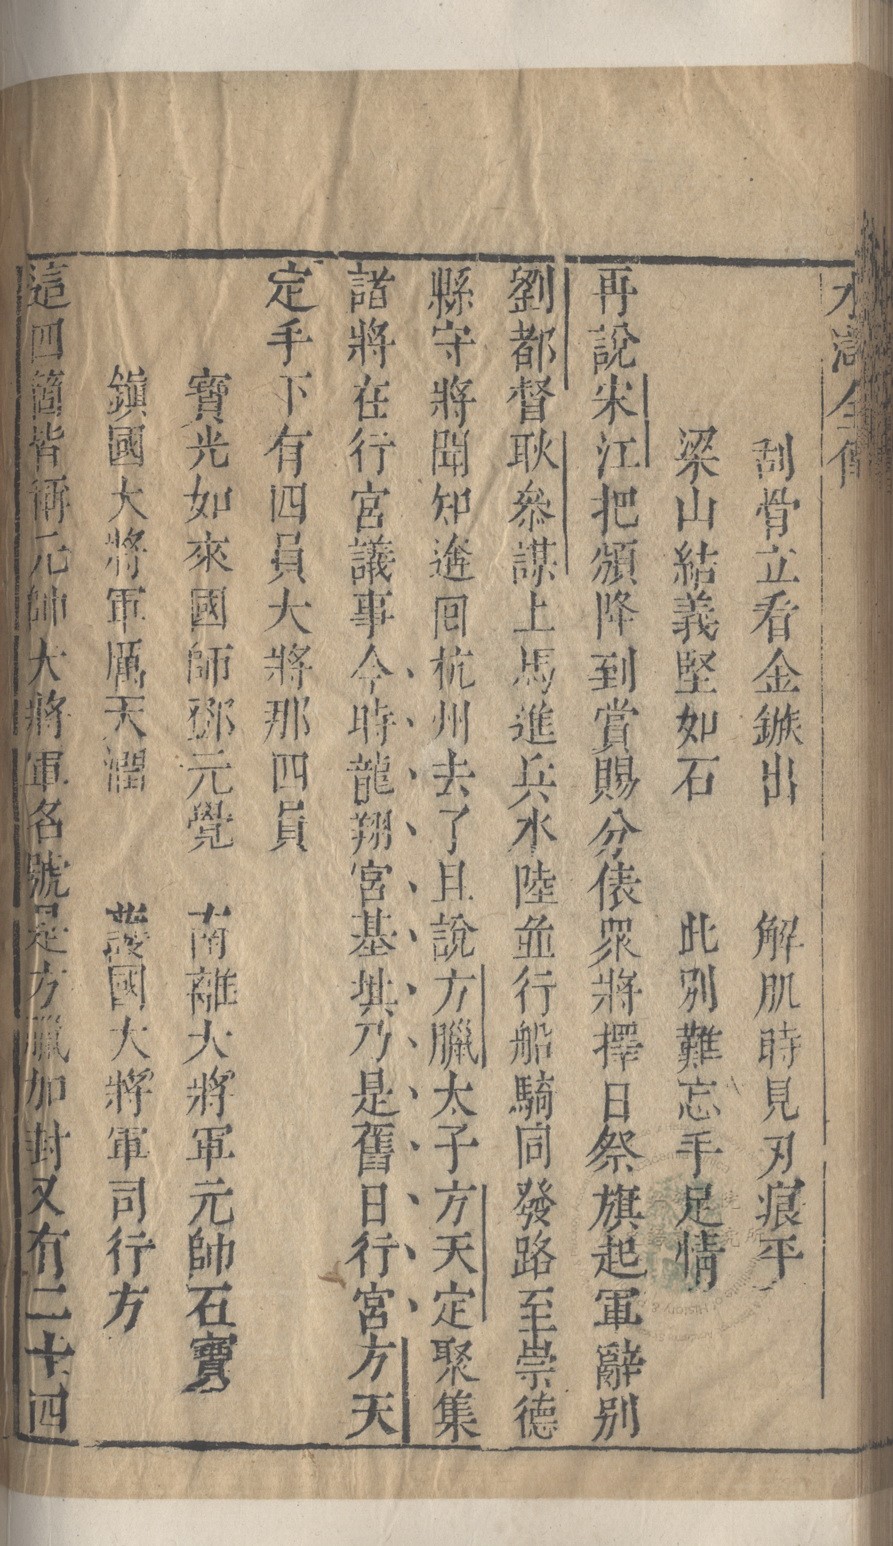 水滸全傳
刮骨立看金鏃出　解肌時見刃痕平
梁山結義堅如石　此別難忘手足情
再說宋江把頒降到賞賜分俵眾將擇日祭旗起軍辭別
劉都督耿叅謀上馬進兵水陸並行船騎同發路至崇德
縣守將聞知逩回杭州去了且說方臘太子方天定聚集
諸將在行宮議事今時龍翔宮基址乃是舊日行宮方天
定手下有四員大將那四員
寶光如來國師鄧元覺　南離大將軍元帥石寶
鎮國大將軍厲天潤　護國大將軍司行方
這四箇皆稱元帥大將軍名號是方臘加封又有二十四